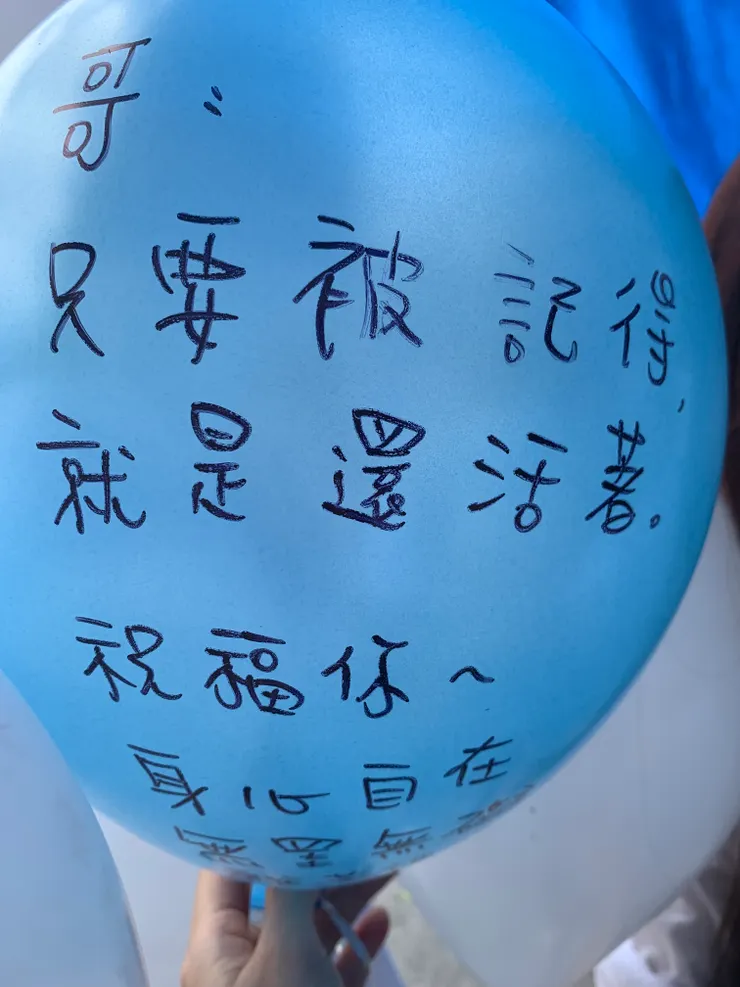 哥：
只要被記得、
就是還活著。
祝福你～
身心自在